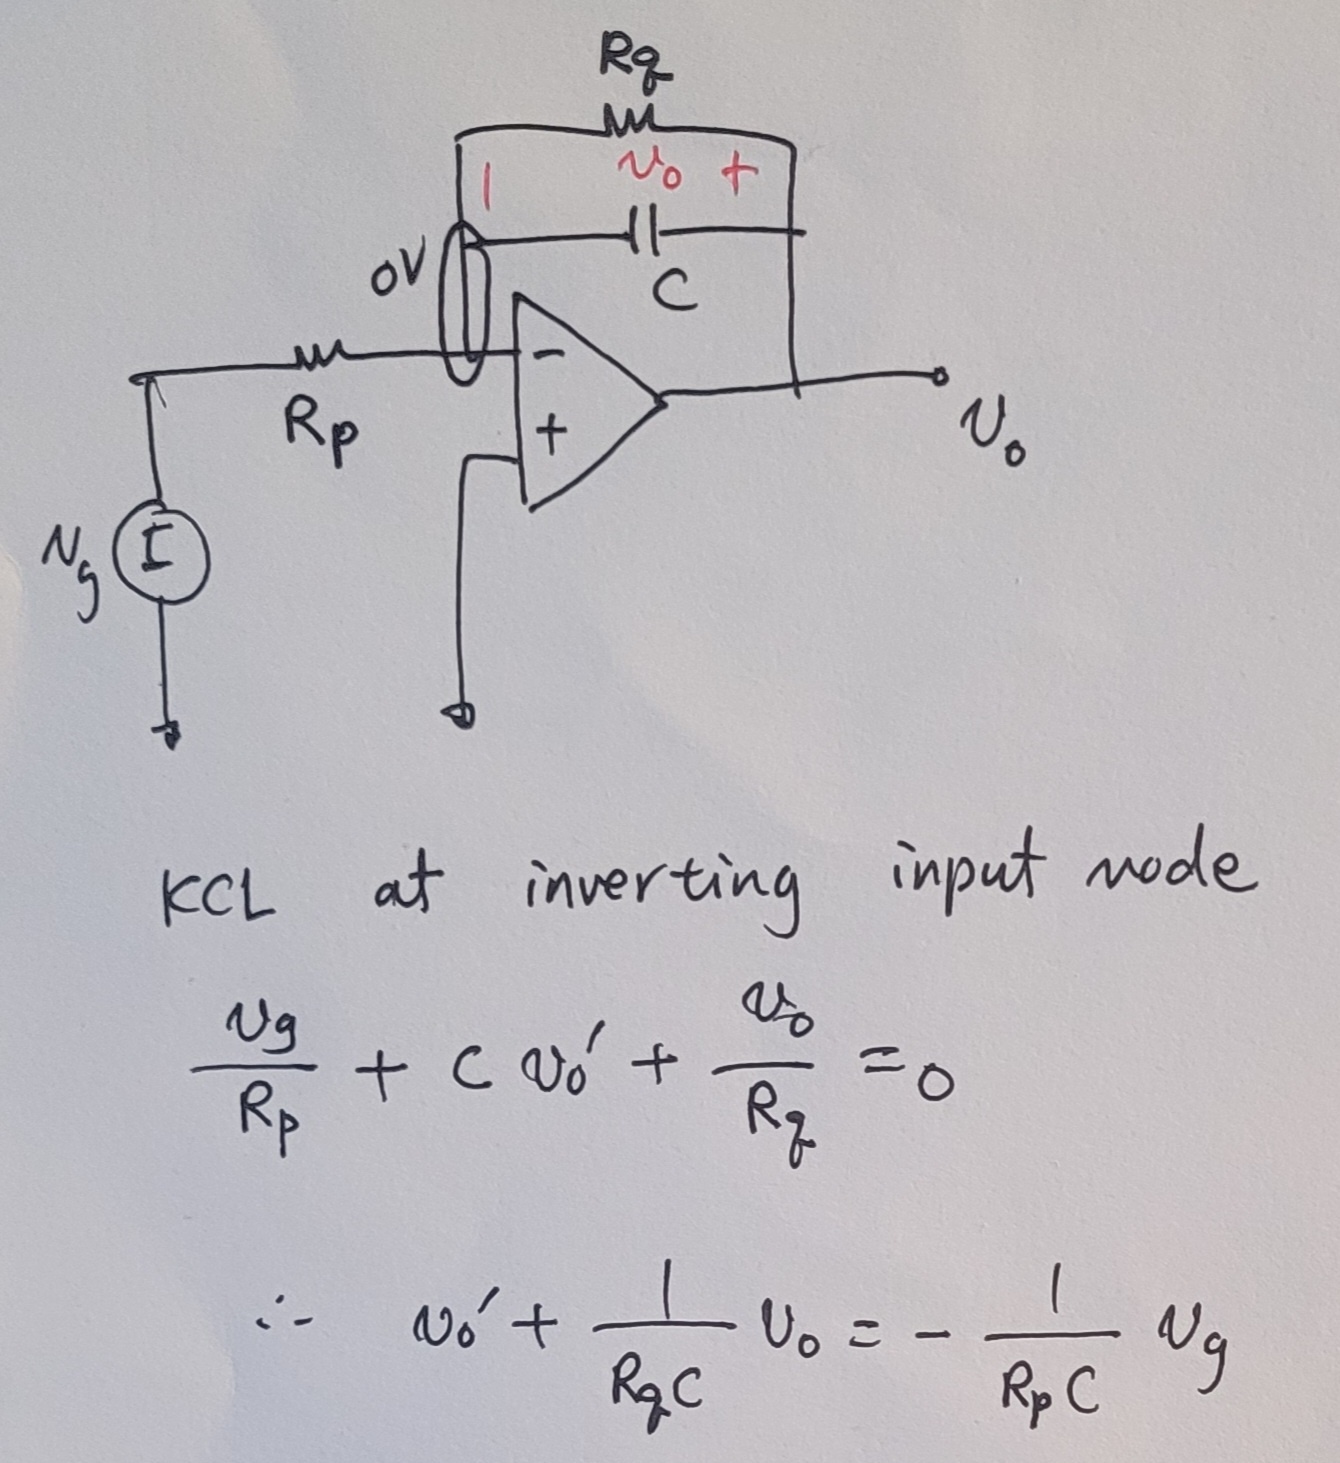 Rq
v₀ +
0V
C
−
Rp
+
v₀
vg
KCL at inverting input node
vg/Rp + C v₀′ + v₀/Rq = 0
∴ v₀′ + 1/(RqC) v₀ = − 1/(RpC) vg